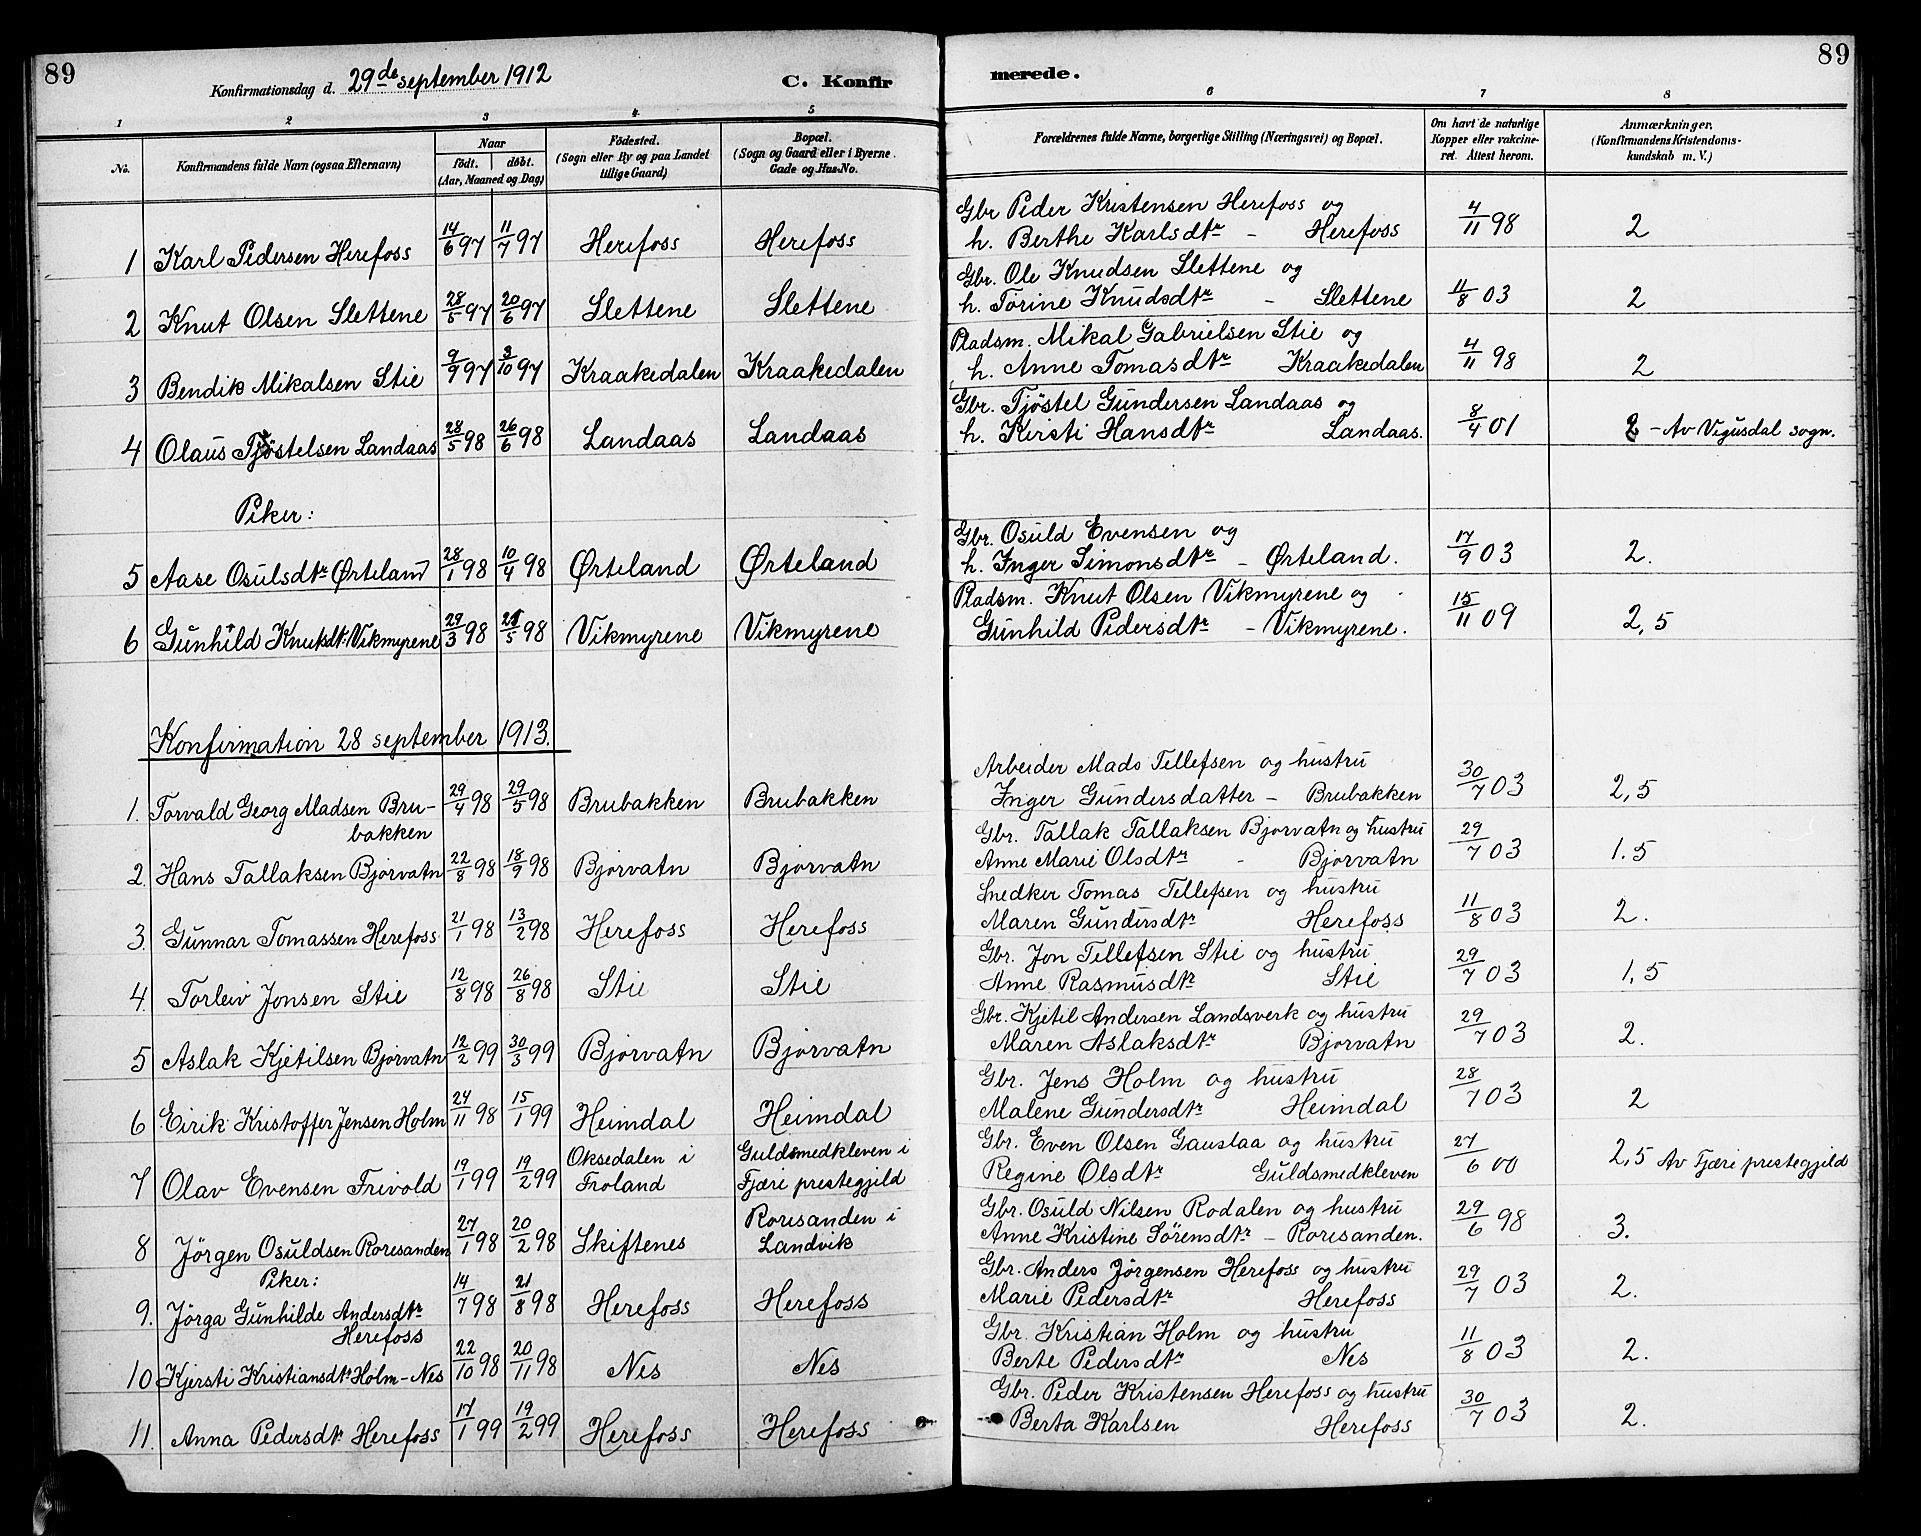 89
Konfirmationsdag d. 29de september 1912
C. Konfir
merede.
89
1 2 3 4. 5 6 7 8
No. Konfirmandens fulde Navn (ogsaa Efternavn) Naar født. døbt. (Aar, Maaned og Dag) Födested. (Sogn eller By og paa Landet tillige Gaard) Bopæl. (Sogn og Gaard eller i Byerne Gade og Hus-No. Forældrenes fulde Navne, borgerlige Stilling (Næringsvei) og Bopæl. Om havt de naturlige Kopper eller vakcineret. Attest herom. Anmærkninger, (Konfirmandens Kristendomskundskab m. V.)
Gbr Peder Kristensen Herefoss og
1 Karl Pedersen Herefoss 14/6 97 11/7 97 Herefoss Herefoss h. Berthe Karlsdtr - Herefoss 4/11 98 2
Gbr. Ole Knudsen Slettene og
2 Knut Olsen Slettene 28/5 97 20/6 97 Slettene Slettene h. Torine Knudsdtr - Slettene 11/8 03 2
Pladsm. Mikal Gabrielsen Stie og
3 Bendik Mikalsen Stie 9/9 97 3/10 97 Kraakedalen Kraakedalen h. Anne Tomasdtr Kraakedalen 4/11 98 2
Gbr. Tjöstel Gundersen Landaas og
4 Olaus Tjöstelsen Landaas 28/5 98 26/6 98 Landaas Landaas h. Kirsti Hansdtr Landaas. 8/4 01 2 - Av Vegusdal sogn.
Piker:
Gbr. Osuld Evensen og
5 Aase Osulsdtr Ørteland 28/1 98 10/4 98 Ørteland Ørteland h. Inger Simonsdtr - Ørteland. 17/9 03 2.
Pladsm. Knut Olsen Vikmyrene og
6 Gunhild Knutsdt. Vikmyrene 29/3 98 21/5 98 Vikmyrene Vikmyrene Gunhild Pedersdtr - Vikmyrene. 15/11 09 2,5
Konfirmation 28 september 1913.
Arbeider Mads Tellefsen og hustru
1. Torvald Georg Madsen Bru- 29/4 98 29/5 98 Brubakken Brubakken Inger Gundersdatter - Brubakken 30/7 03 2,5
bakken
Gbr. Tallak Tallaksen Bjorvatn og hustru
2. Hans Tallaksen Bjorvatn 22/8 98 18/9 98 Bjorvatn Bjorvatn Anne Marie Olsdtr - Bjorvatn 29/7 03 1.5
Snedker Tomas Tellefsen og hustru
3. Gunnar Tomassen Herefoss 21/1 98 13/2 98 Herefoss Herefoss Maren Gundersdtr Herefoss 11/8 03 2.
Gbr. Jon Tellefsen Stie og hustru
4. Torleiv Jonsen Stie 12/8 98 26/8 98 Stie Stie Anne Rasmusdtr Stie 29/7 03 1,5
Gbr. Kjetil Andersen Landsverk og hustru
5 Aslak Kjetilsen Bjorvatn 12/2 99 30/3 99 Bjorvatn Bjorvatn Maren Aslaksdtr Bjorvatn 29/7 03 2.
Gbr. Jens Holm og hustru
6 Eirik Kristoffer Jensen Holm 24/11 98 15/1 99 Heimdal Heimdal Malene Gundersdtr Heimdal 28/7 03 2
Oksedalen i Guldsmedkleven i Gbr. Even Olsen Gauslaa og hustru
7 Olav Evensen Frivold 19/1 99 19/2 99 Froland Fjære prestegjild Regine Olsdtr Guldsmedkleven 27/6 00 2,5 Av Fjære prestegjild
Roresanden i Gbr. Osuld Nilsen Rodalen og hustru
8 Jörgen Osuldsen Roresanden 27/1 98 20/2 98 Skiftenes Landvik Anne Kristine Sörensdtr - Roresanden. 29/6 98 3.
Piker:
Gbr. Anders Jörgensen Herefoss og hustru
9. Jörga Gunhilde Andersdtr 14/7 98 21/8 98 Herefoss Herefoss Marie Pedersdtr Herefoss 29/7 03 2.
Herefoss
Gbr. Kristian Holm og hustru
10 Kjersti Kristiansdtr Holm-Nes 22/10 98 20/11 98 Nes Nes Berte Pedersdtr Nes 11/8 03 2.
Gbr. Peder Kristensen Herefoss og hustru
11. Anna Pedersdtr Herefoss 17/1 99 19/2 99 Herefoss Herefoss Berta Karlsen Herefoss 30/7 03 2.